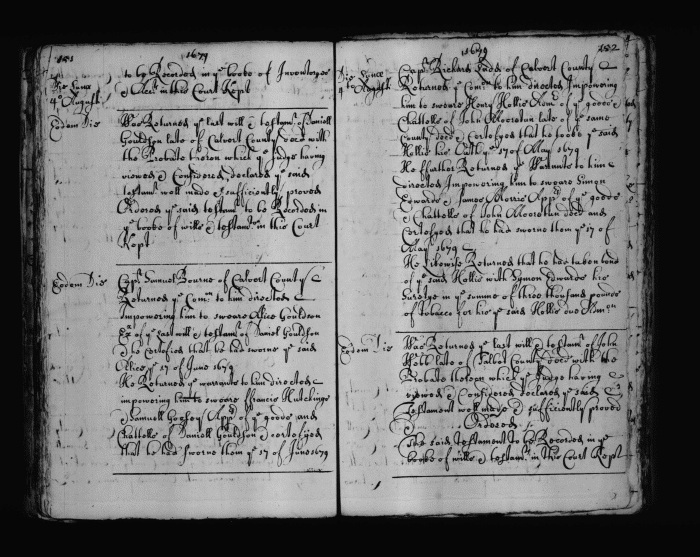 151
1679
Die Lunæ
4º August
to be Recorded in ye booke of Inventoryes
& Accts in this Court Kept
Eodem Die
Was Returned ye last will & testamt of Daniell
Gouldson late of Calvert County decd with
the Probate thereon which ye Judge having
viewed & Considered declared ye said
testamt well made & sufficiently proved
Ordered ye said testamt to be Recorded in
ye booke of wills & testamts in this Court
Kept
Eodem Die
Capt Samuel Bourne of Calvert County
Returned ye Comn to him directed
Impowering him to sweare Alice Gouldson
Ex of ye last will & testamt of Daniel Gouldson
& he Certifyed that he had sworne ye said
Alice ye 17 of June 1679
He Returned ye warrante to him directed
impowering him to sweare Francis Hutchings
& Samuell Appr of ye goods and
Chattells of Daniell Gouldson & Certifyed
that he had sworne them ye 17 of June 1679
1679
152
Die Lunæ
4º August
Capt Richard Ladd of Calvert County
Returned ye Comn to him directed Impowering
him to sweare Henry Hollis Admr of ye goods &
Chattells of John late of ye same
County decd & Certifyed that he tooke ye said
Hollis his Oath ye 17 of May 1679
He ffurther Returned ye Warrante to him
Directed Impowering him to sweare Simon
Edwards & James Morris Appr of ye goods
& Chattells of John decd and
Certifyed that he had sworne them ye 17 of
May 1679
He likewise Returned that he had taken bond
of ye said Hollis with Symon Edwards his
Suretye in ye summe of three thousand pounds
of tobacco for his ye said Hollis due Admon
Eodem Die
Was Returned ye last will & testamt of John
late of Talbot County decd with the
Probate thereon which ye Judge having
viewed & Considered declared ye said
Testament well made & sufficiently proved
Ordered
The said testament to be Recorded in ye
booke of wills & testamts in this Court Kept